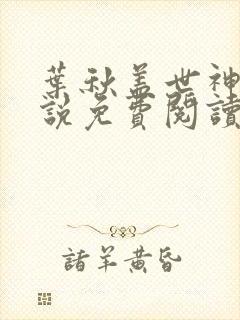 葉秋盖世神
說免費閱讀
諸羊黃昏